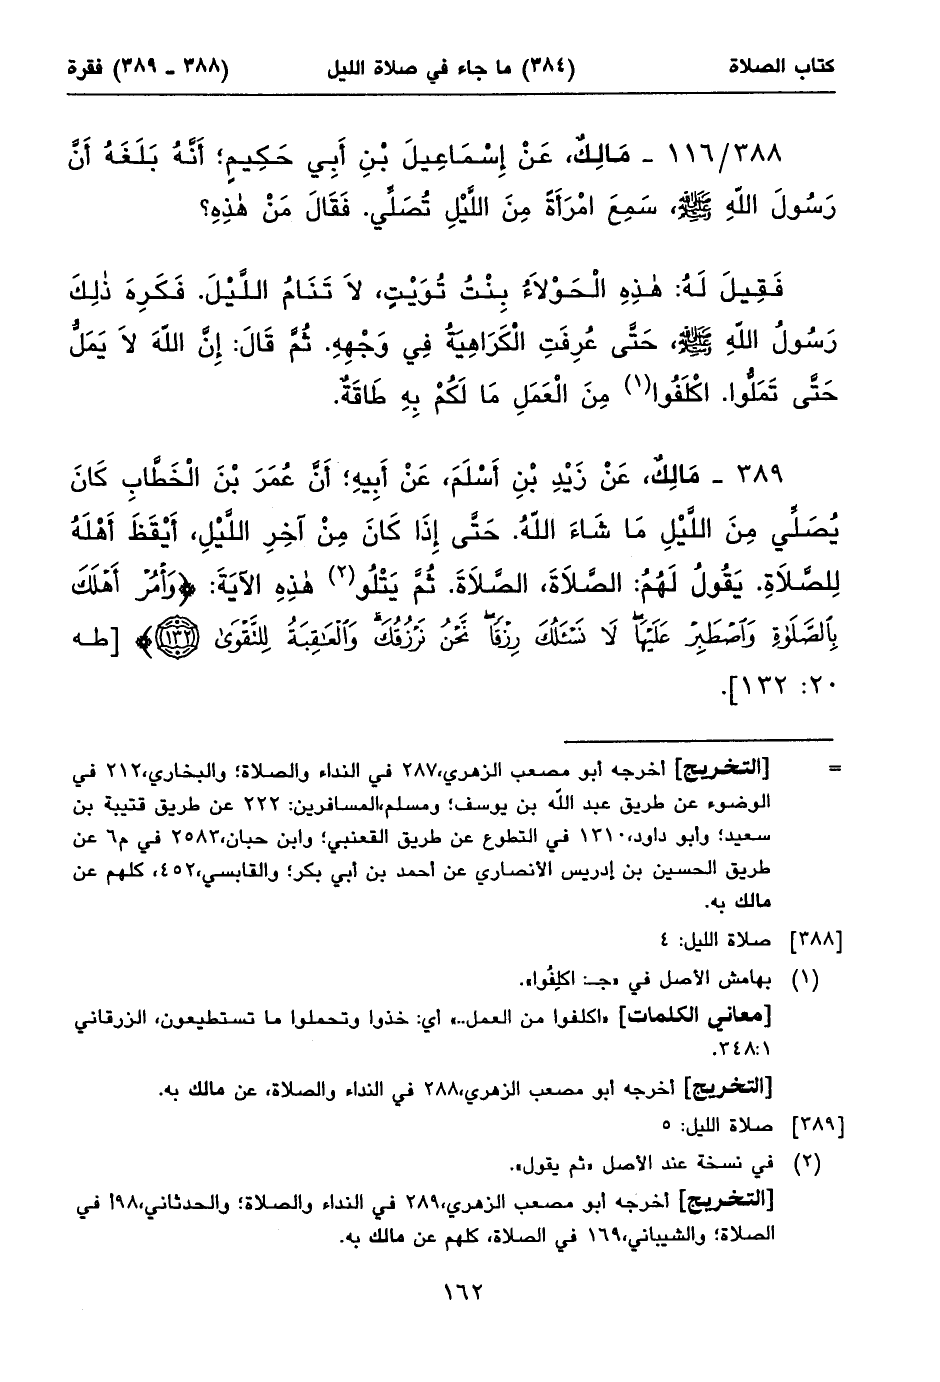 كتاب الصلاة (٣٨٤) ما جاء في صلاة الليل (٣٨٨ ـ ٣٨٩) فقرة
١١٦/٣٨٨ ـ مَالِكٌ، عَنْ إِسْمَاعِيلَ بْنِ أَبِي حَكِيمٍ؛ أَنَّهُ بَلَغَهُ أَنَّ
رَسُولَ اللّهِ ﷺ، سَمِعَ امْرَأَةً مِنَ اللَّيْلِ تُصَلِّي. فَقَالَ مَنْ هٰذِهِ؟
فَقِيلَ لَهُ: هٰذِهِ الْحَوْلاَءُ بِنْتُ تُوَيْتٍ، لاَ تَنَامُ اللَّيْلَ. فَكَرِهَ ذٰلِكَ
رَسُولُ اللّهِ ﷺ، حَتَّى عُرِفَتِ الْكَرَاهِيَةُ فِي وَجْهِهِ. ثُمَّ قَالَ: إِنَّ اللّهَ لاَ يَمَلُّ
حَتَّى تَمَلُّوا. اكْلَفُوا(١) مِنَ الْعَمَلِ مَا لَكُمْ بِهِ طَاقَةٌ.
٣٨٩ ـ مَالِكٌ، عَنْ زَيْدِ بْنِ أَسْلَمَ، عَنْ أَبِيهِ؛ أَنَّ عُمَرَ بْنَ الْخَطَّابِ كَانَ
يُصَلِّي مِنَ اللَّيْلِ مَا شَاءَ اللّهُ. حَتَّى إِذَا كَانَ مِنْ آخِرِ اللَّيْلِ، أَيْقَظَ أَهْلَهُ
لِلصَّلاَةِ. يَقُولُ لَهُمُ: الصَّلاَةَ، الصَّلاَةَ. ثُمَّ يَتْلُو(٢) هٰذِهِ الآيَةَ: ﴿وَأْمُرْ أَهْلَكَ
بِالصَّلَوٰةِ وَاصْطَبِرْ عَلَيْهَا ۖ لَا نَسْـَٔلُكَ رِزْقًا ۖ نَّحْنُ نَرْزُقُكَ ۗ وَالْعَاقِبَةُ لِلتَّقْوَىٰ ١٣٢﴾ [طه
٢٠: ١٣٢].
= [التخريج] أخرجه أبو مصعب الزهري،٢٨٧ في النداء والصلاة؛ والبخاري،٢١٢ في
الوضوء عن طريق عبد اللّه بن يوسف؛ ومسلم،المسافرين: ٢٢٢ عن طريق قتيبة بن
سعيد؛ وأبو داود،١٣١٠ في التطوع عن طريق القعنبي؛ وابن حبان،٢٥٨٣ في م٦ عن
طريق الحسين بن إدريس الأنصاري عن أحمد بن أبي بكر؛ والقابسي،٤٥٢، كلهم عن
مالك به.
[٣٨٨] صلاة الليل: ٤
(١) بهامش الأصل في «جـ: اكلِفُوا».
[معاني الكلمات] «اكلفوا من العمل..» أي: خذوا وتحملوا ما تستطيعون، الزرقاني
٣٤٨:١.
[التخريج] أخرجه أبو مصعب الزهري،٢٨٨ في النداء والصلاة، عن مالك به.
[٣٨٩] صلاة الليل: ٥
(٢) في نسخة عند الأصل «ثم يقول».
[التخريج] أخرجه أبو مصعب الزهري،٢٨٩ في النداء والصلاة؛ والحدثاني،٩٨أ في
الصلاة؛ والشيباني،١٦٩ في الصلاة، كلهم عن مالك به.
١٦٢